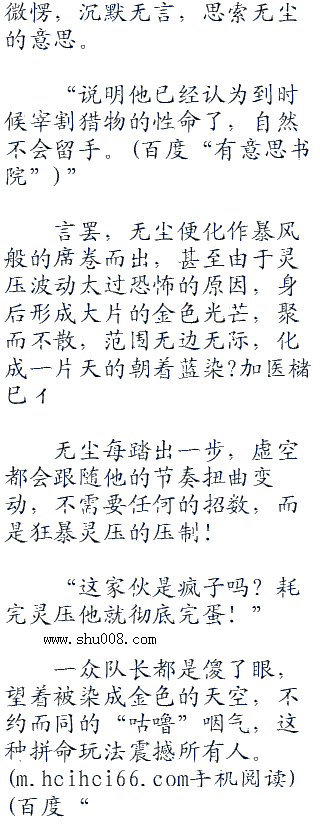 微愣，沉默无言，思索无尘
的意思。
“说明他已经认为到时
候宰割猎物的性命了，自然
不会留手。(百度“有意思书
院”)”
言罢，无尘便化作暴风
般的席卷而出，甚至由于灵
压波动太过恐怖的原因，身
后形成大片的金色光芒，聚
而不散，范围无边无际，化
成一片天的朝着蓝染?加医槠
巳亻
无尘每踏出一步，虚空
都会跟随他的节奏扭曲变
动，不需要任何的招数，而
是狂暴灵压的压制！
“这家伙是疯子吗？耗
完灵压他就彻底完蛋！”
www.shu008.com
一众队长都是傻了眼，
望着被染成金色的天空，不
约而同的“咕噜”咽气，这
种拼命玩法震撼所有人。
(m.hcihci66.com手机阅读)
(百度“